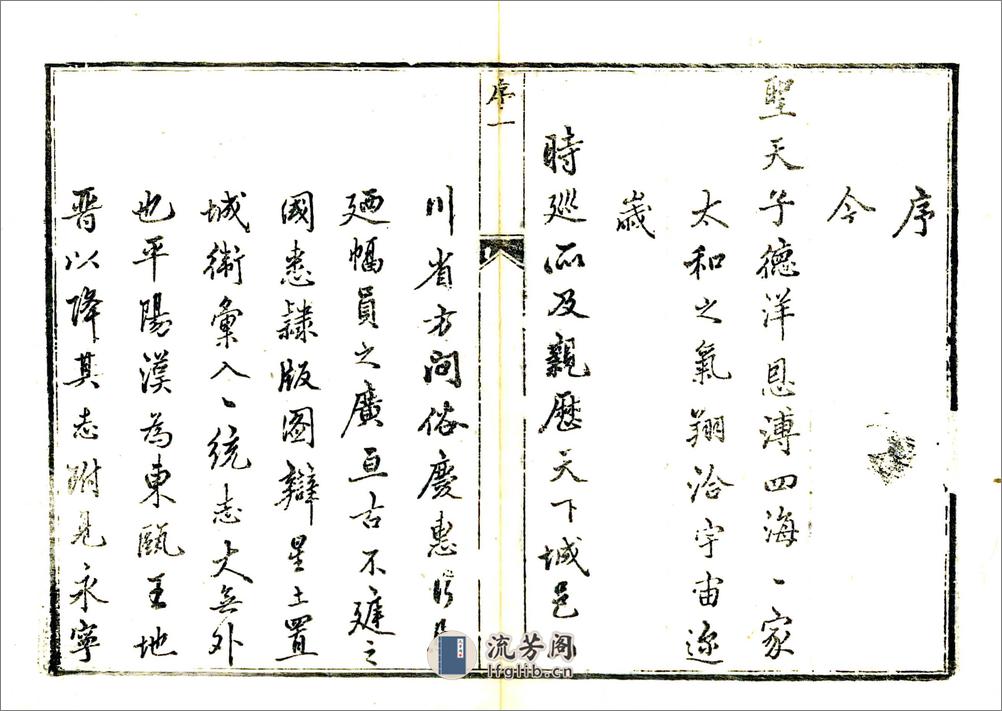 序
今
聖天子德洋恩溥四海一家
太和之氣翔洽宇宙逐
歲
時巡所及親歷天下城邑
序一
川省方問俗慶惠
廼幅員之廣亘古不
國悉隸版圖辯星土置
城衛彙入一統志大無外
也平陽漢為東甌王地
晋以降其志附見永寧
流芳阁
lfglib.cn